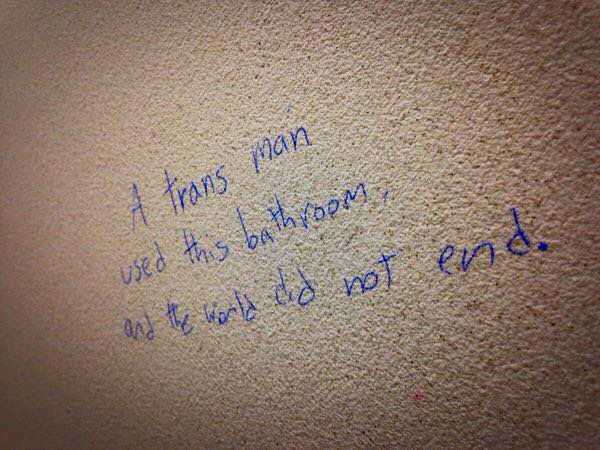 A trans man
used this bathroom,
and the world did not end.